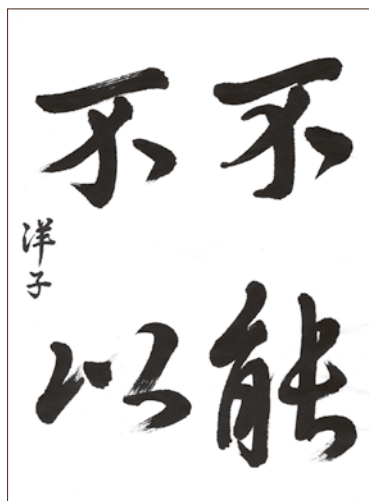 不能
不以
洋子